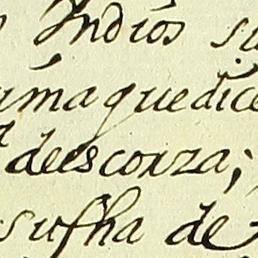 Indios su
úma que dice
de escorza;
sufha de